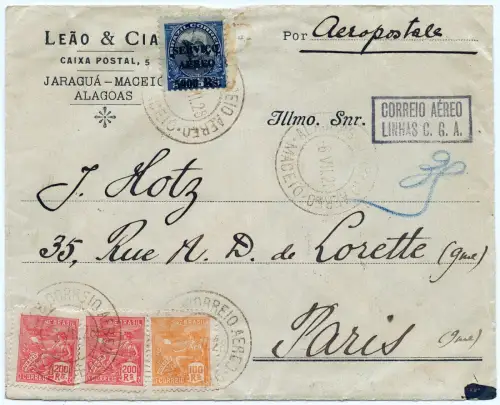 LEÃO & CIA
CAIXA POSTAL, 5
JARAGUÁ - MACEIÓ
ALAGOAS
BRASIL CORREIO
SERVIÇO
AEREO
Por Aeropostale
CORREIO AÉREO
LINHAS C. G. A.
Illmo. Snr.
CORREIO AEREO
MACEIO
J. Hotz
35, Rue N. D. de Lorette (9me)
Paris (9me)
CORREIO AEREO
CORREIO AEREO
BRASIL
200
RS
BRASIL
200
RS
BRASIL
100
RS